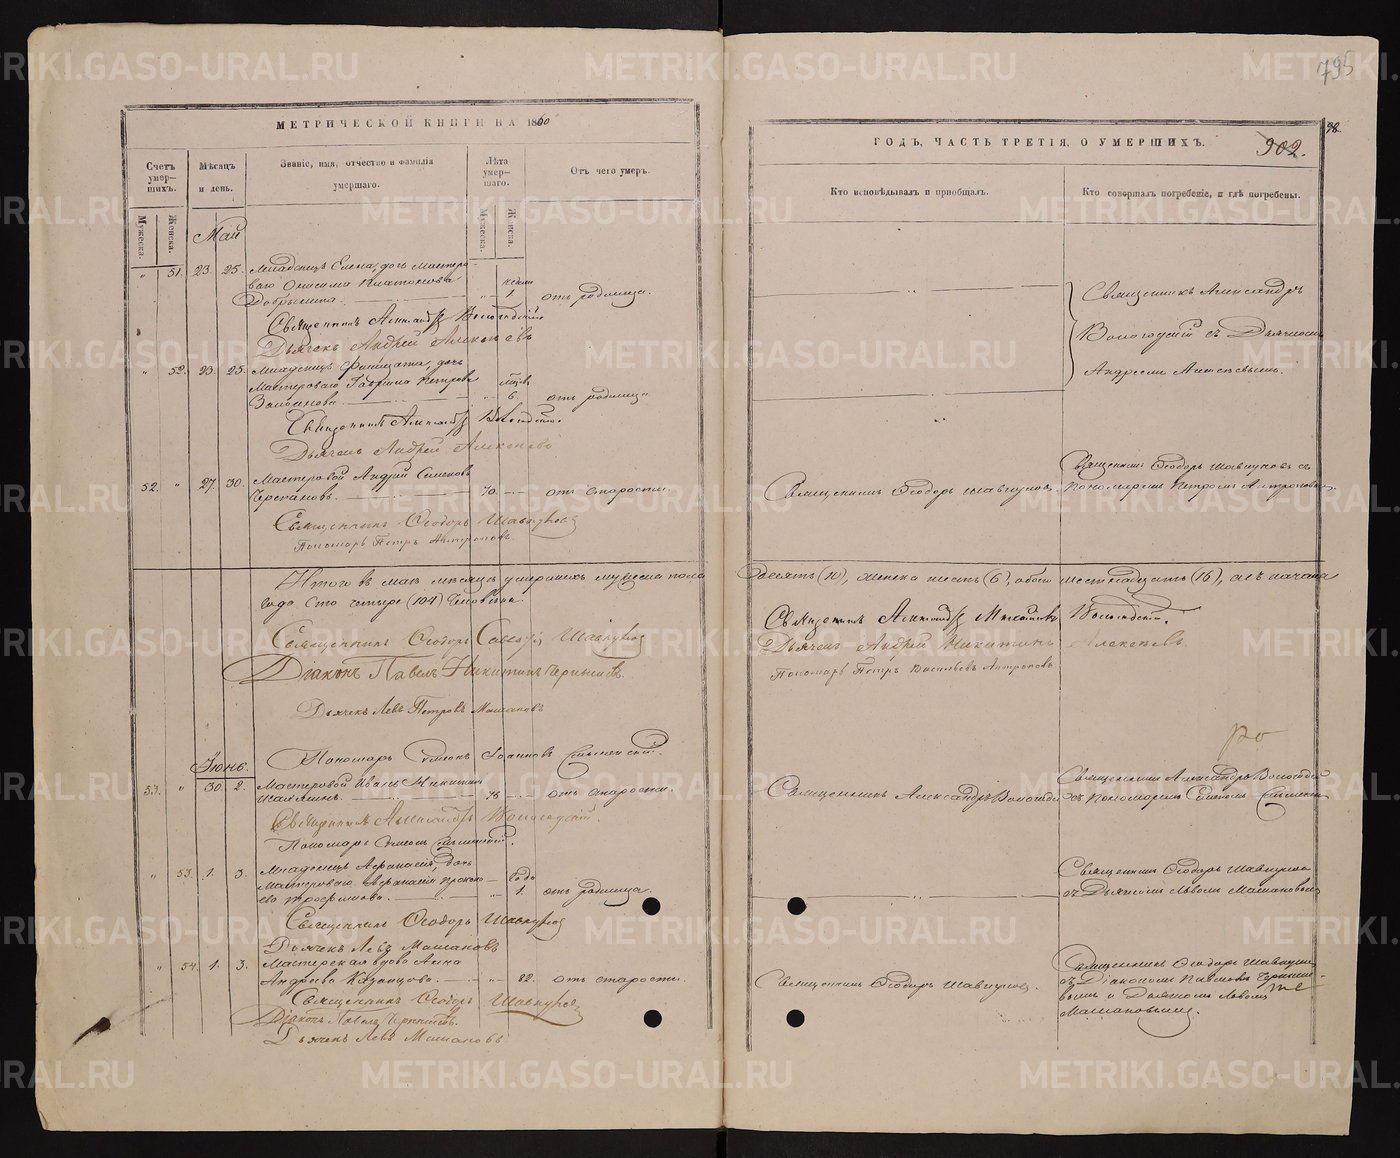 МЕТРИЧЕСКОЙ КНИГИ НА 1860
Счетъ умерших.
Мѣсяцъ и день.
Званіе, имя, отчество и фамилія умершаго.
Лѣта умершаго.
Отъ чего умеръ.
Мужеска.
Женска.
Мужеска.
Женска.
Май
51. 23. 25. Младенецъ Елена, дочь Мастероваго
Платонова
недѣли
Добрынина 1. отъ родимца.
Священникъ Александръ Вологодскій
Дьячекъ Андрей Алексѣевъ
52. 23. 25. Младенецъ дочь
Мастероваго Гавриила Петрова мѣсяц.
6. отъ родимца
Священникъ Александръ Вологодскій.
Дьячекъ Андрей Алексѣевъ
52. " 27. 30. Мастеровой Андрей Семеновъ
Черепановъ. 70. отъ старости.
Священникъ Ѳеодоръ Шавкуновъ
Пономарь Петръ Антроповъ.
Итого въ маѣ мѣсяцѣ умершихъ мужеска пола
года сто четыре (104) человѣка.
Священникъ Ѳеодоръ Шавкуновъ
Діаконъ Павелъ Никитинъ
Дьячекъ Левъ Петровъ Машановъ
Пономарь Симеонъ Іоанновъ
Іюнь.
53. " 30. 2. Мастеровой Иванъ Никитинъ
76. отъ старости.
Священникъ Александръ Вологодскій.
Пономарь Симеонъ
" 53. 1. 3. Младенецъ Аѳанасія, дочь
Мастероваго года
1. отъ родимца.
Священникъ Ѳеодоръ Шавкуновъ
Дьячекъ Левъ Машановъ
" 54. 1. 3. Мастерская вдова Анна
Андреева Казанцова. 82. отъ старости.
Священникъ Ѳеодоръ Шавкуновъ
Діаконъ Павелъ
Дьячекъ Левъ Машановъ
795
98
ГОДЪ, ЧАСТЬ ТРЕТІЯ, О УМЕРШИХЪ.
902.
Кто исповѣдывалъ и пріобщалъ.
Кто совершалъ погребеніе, и гдѣ погребены.
Священникъ Александръ
Вологодскій съ Дьячкомъ
Андреемъ Алексѣевымъ.
Священникъ Ѳеодоръ Шавкуновъ.
Священникъ Ѳеодоръ Шавкуновъ съ
Пономаремъ Петромъ Антроповымъ.
десять (10), женска шесть (6), обоего шестнадцать (16), а съ начала
Священникъ Александръ Михайловъ Вологодскій.
Дьячекъ Андрей Никитинъ Алексѣевъ
Пономарь Петръ Васильевъ Антроповъ
Священникъ Александръ Вологодскій
Священникъ Александръ Вологодскій
съ Пономаремъ Симеономъ
Священникъ Ѳеодоръ Шавкуновъ
съ Дьячкомъ Львомъ Машановымъ
Священникъ Ѳеодоръ Шавкуновъ.
Священникъ Ѳеодоръ Шавкуновъ
съ Діакономъ Павломъ
и Дьячкомъ Львомъ
Машановымъ.
METRIKI.GASO-URAL.RU